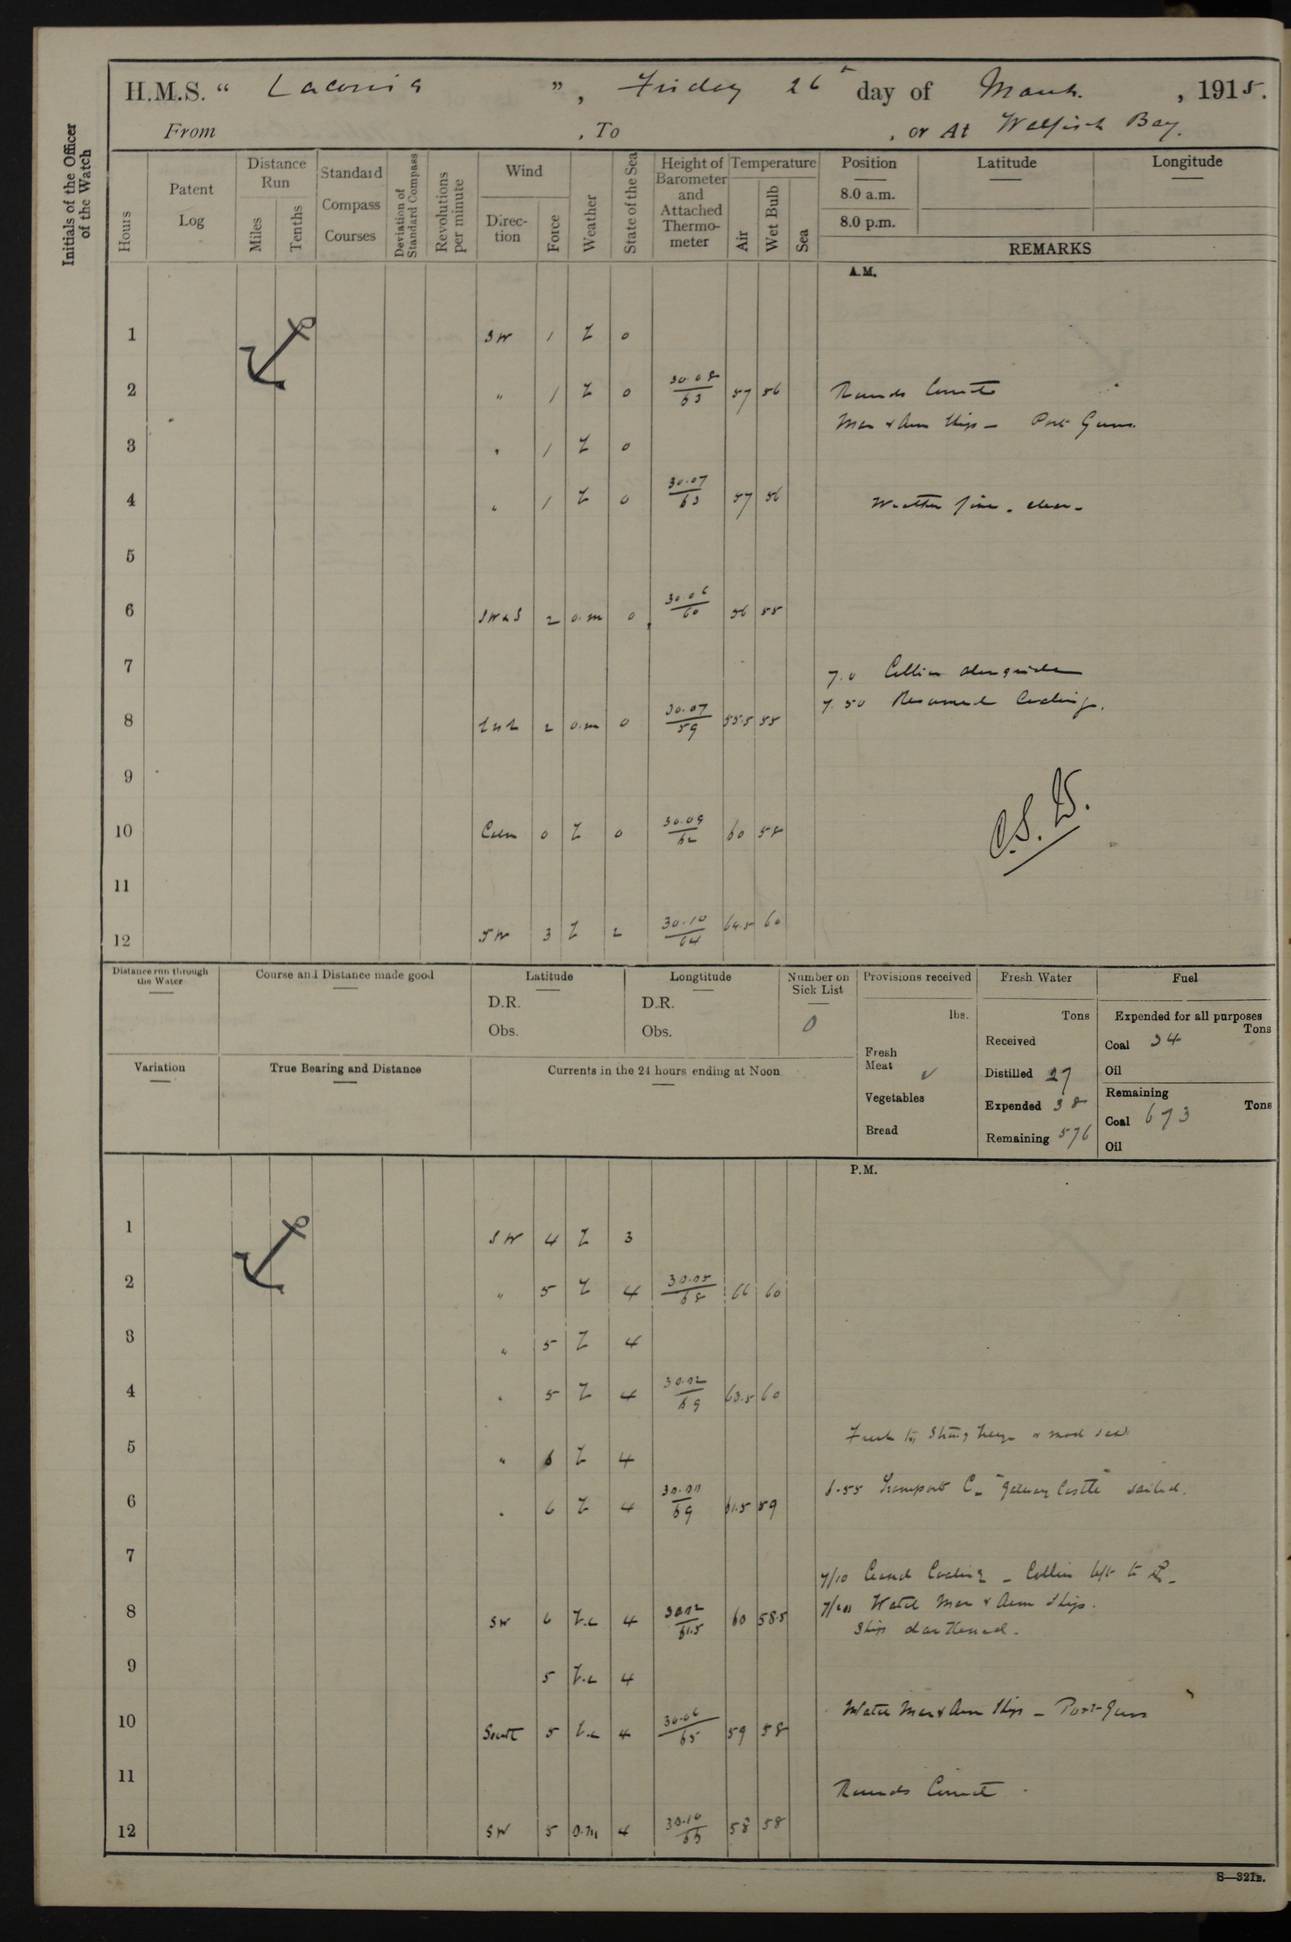 H.M.S. " Laconia ", Friday 26th day of March, 1915.
From , To , or At Walfisch Bay.
Initials of the Officer of the Watch
Hours
Patent Log
Distance Run
Miles
Tenths
Standard Compass Courses
Deviation of Standard Compass
Revolutions per minute
Wind
Direc-tion
Force
Weather
State of the Sea
Height of Barometer and Attached Thermo-meter
Temperature
Air
Wet Bulb
Sea
Position
Latitude
Longitude
8.0 a.m.
8.0 p.m.
REMARKS
A.M.
1 SW 1 Z 0
2 " 1 Z 0 30.08/63 57 56 Rounds Correct
Man & Arm Ships - Port Guns
3 " 1 Z 0
4 " 1 Z 0 30.07/63 57 56 Weather fine. clear.
5
6 2 o.m 0 30.06/60 56 55
7 7.0 Collier alongside
7.50 Resumed Coaling.
8 2 o.m 0 30.07/59 55.5 55
9
10 Calm 0 Z 0 30.09/62 60 58
11
12 SW 3 Z 2 30.10/64 64.5 60
Distance run through the Water
Course and Distance made good
Latitude
D.R.
Obs.
Longtitude
D.R.
Obs.
Number on Sick List
0
Provisions received
lbs.
Fresh Meat ✓
Vegetables
Bread
Fresh Water
Tons
Received
Distilled 27
Expended 38
Remaining 576
Fuel
Expended for all purposes
Tons
Coal 34
Oil
Remaining
Tons
Coal 673
Oil
Variation
True Bearing and Distance
Currents in the 24 hours ending at Noon
P.M.
1 SW 4 Z 3
2 " 5 Z 4 30.05/68 66 60
3 " 5 Z 4
4 " 5 Z 4 30.02/69 63.5 60
5 " 6 Z 4 Fresh to Strong breeze & mod sea.
6 " 6 Z 4 61.5 59 6.55 Transport "Galway Castle" sailed.
7 7/10 Ceased Coaling - Collier left to
8 SW 6 Z.c 4 60 58.5 Watch Man & Arm Ships.
Ship darkened.
9 5 Z.c 4
10 South 5 Z.c 4 30.06/65 59 58 Watch Man & Arm Ships - Port Guns
11 Rounds Correct
12 SW 5 o.m 4 58 58
S—321B.